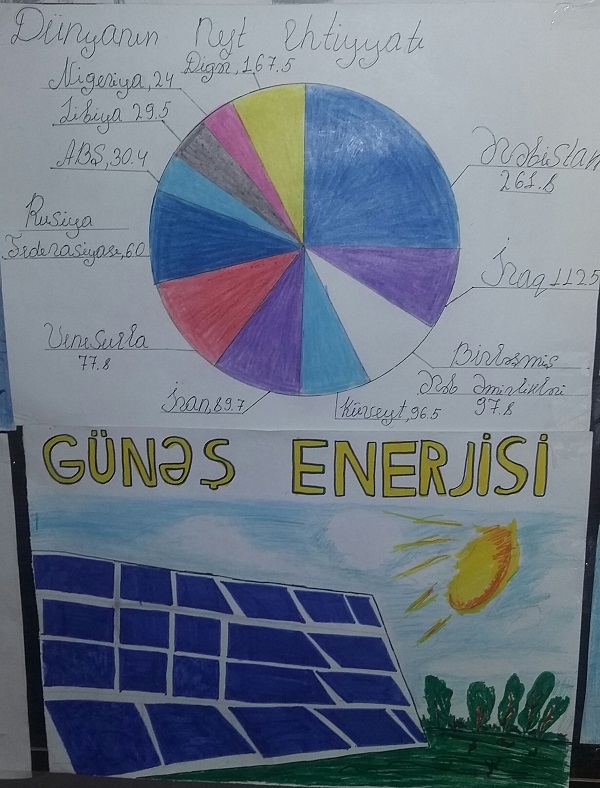 Dünyanın Neft Ehtiyyatı
Digər, 167.5
Nigeriya, 24
Libiya 29.5
ABŞ, 30.4
Rusiya
Federasiyası, 60
Venesuela
77.8
İran, 89.7
Küveyt, 96.5
Birləşmiş
Ərəb Əmirlikləri
97.8
İraq 112.5
Ərəbistan
261.8
GÜNƏŞ ENERJİSİ